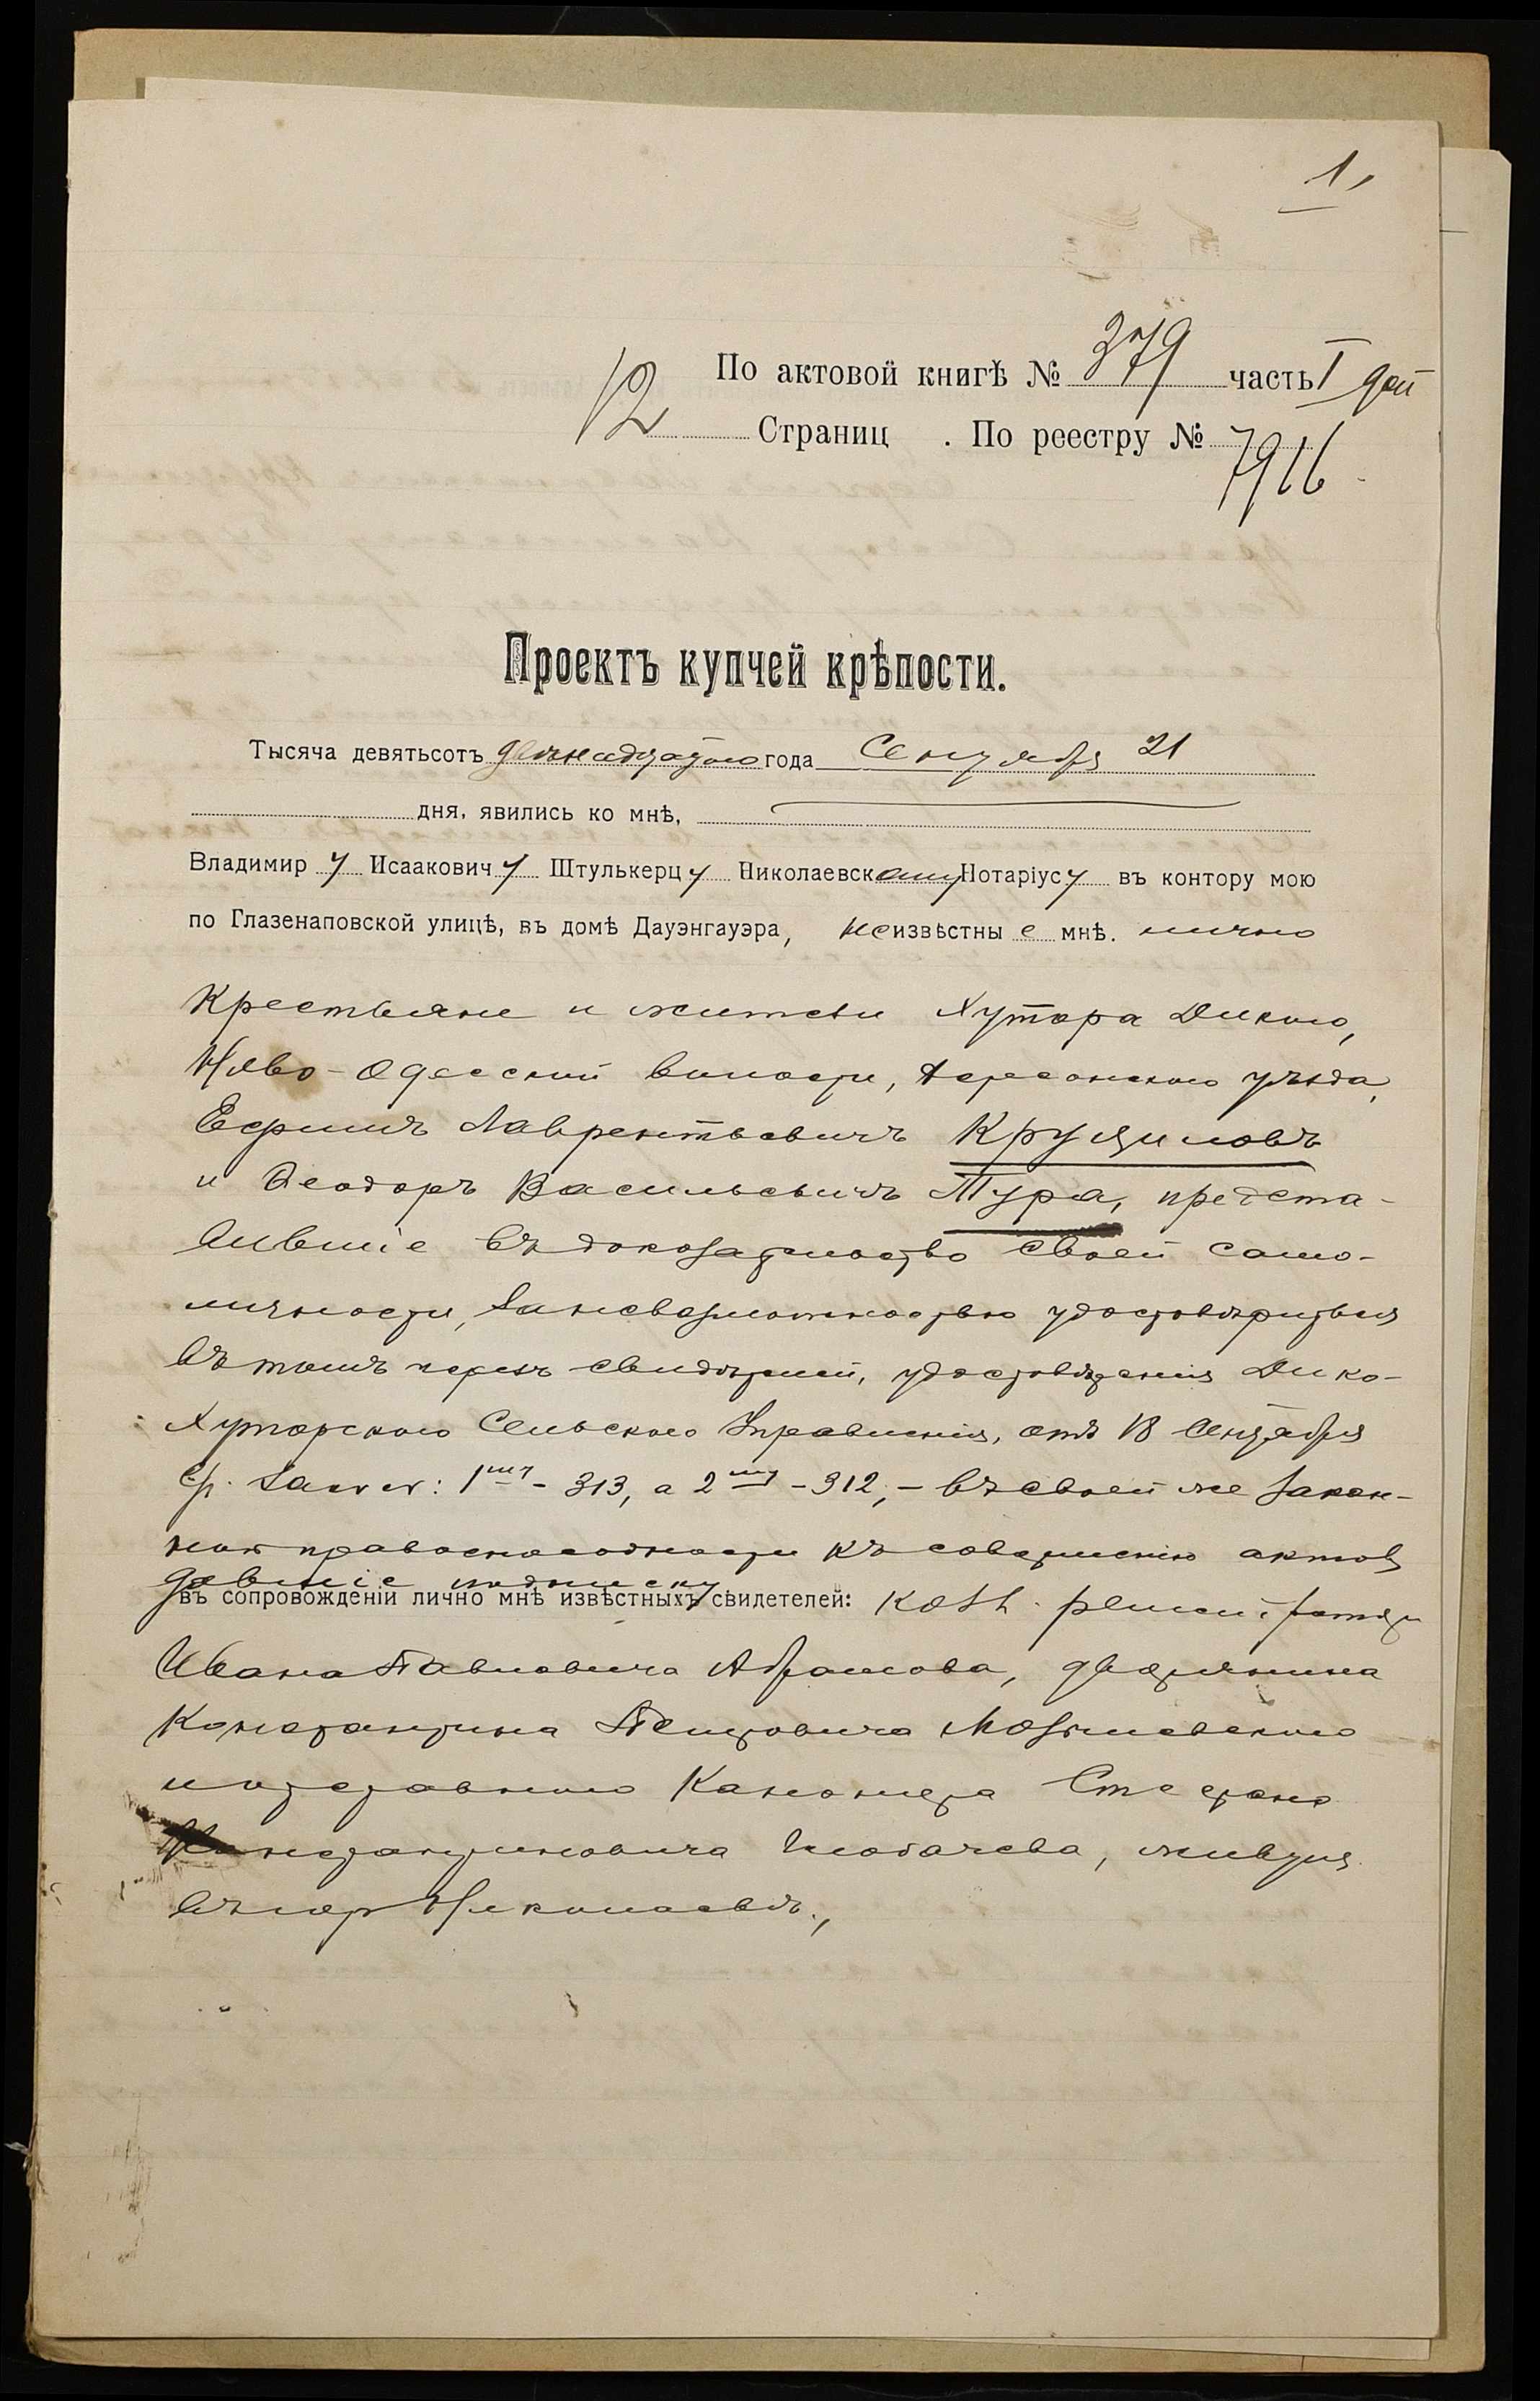 1,
По актовой книгѣ № 379 часть I
12 Страниц . По реестру № 7916
Проектъ купчей крѣпости.
Тысяча девятьсотъ двѣнадцатого года Сентября 21
дня, явились ко мнѣ,
Владимиру Исааковичу Штулькерцу Николаевскому Нотаріусу въ контору мою
по Глазенаповской улицѣ, въ домѣ Дауэнгауэра, неизвѣстные мнѣ. лично
Крестьяне и жители Хутора Дикого,
Ново-Одесской волости, Херсонского уѣзда,
Ефимъ Лаврентьевичъ Крущиловъ
и Ѳеодоръ Васильевичъ Тура, предста-
вившіе въ доказательство своей само-
личности, за невозможностью удостовѣриться
въ томъ черезъ свидѣтелей, удостовѣренія Дико-
Хуторского Сельского Управленія, отъ 18 Сентября
с/г. за № №: 1му - 313, а 2му - 312, - въ своей же закон-
ной правоспособности къ совершенію актовъ
давшіе подписку
въ сопровожденіи лично мнѣ извѣстныхъ свидетелей: Колл.
Ивана Павловича Абрамова, дворянина
Константина Петровича
и отставного Канонира Стефана
Константиновича живущ.
въ гор Николаевѣ.,